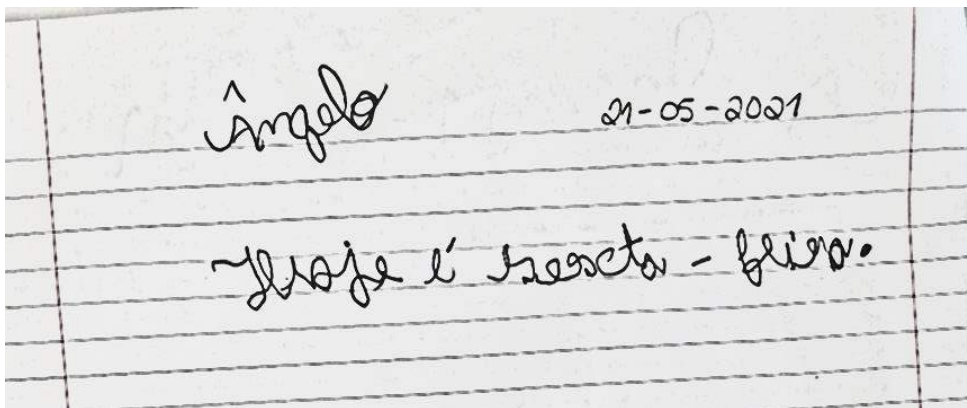 Ângelo 21-05-2021
Hoje é sexta-feira.